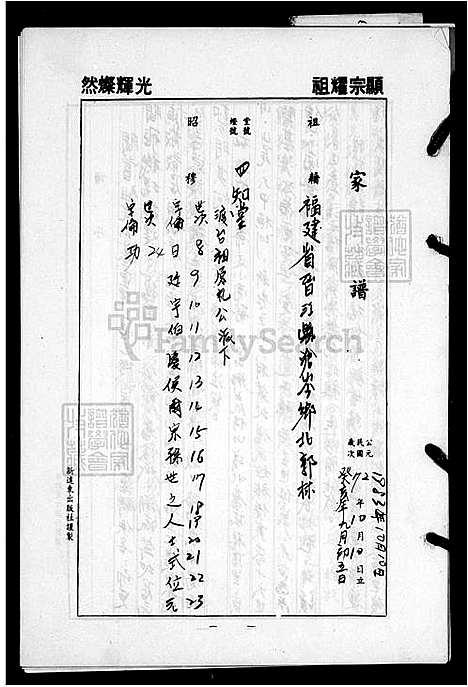 顯宗耀祖
光輝燦然
家譜
公元1983年10月10日
民國72年10月10日立
歲次癸亥年九月初五日
祖籍 福建省晉江縣
鄉北郭林
堂號
燈號
四知堂
渡台祖
公派下
昭穆
世 8 9 10 11 12 13 14 15 16 17 18 19 20 21 22 23
字倫 日 宇伯 侯爾宗孫世之人士式位元
世 24
字倫 功
新遠東出版社謹製
一
FamilySearch